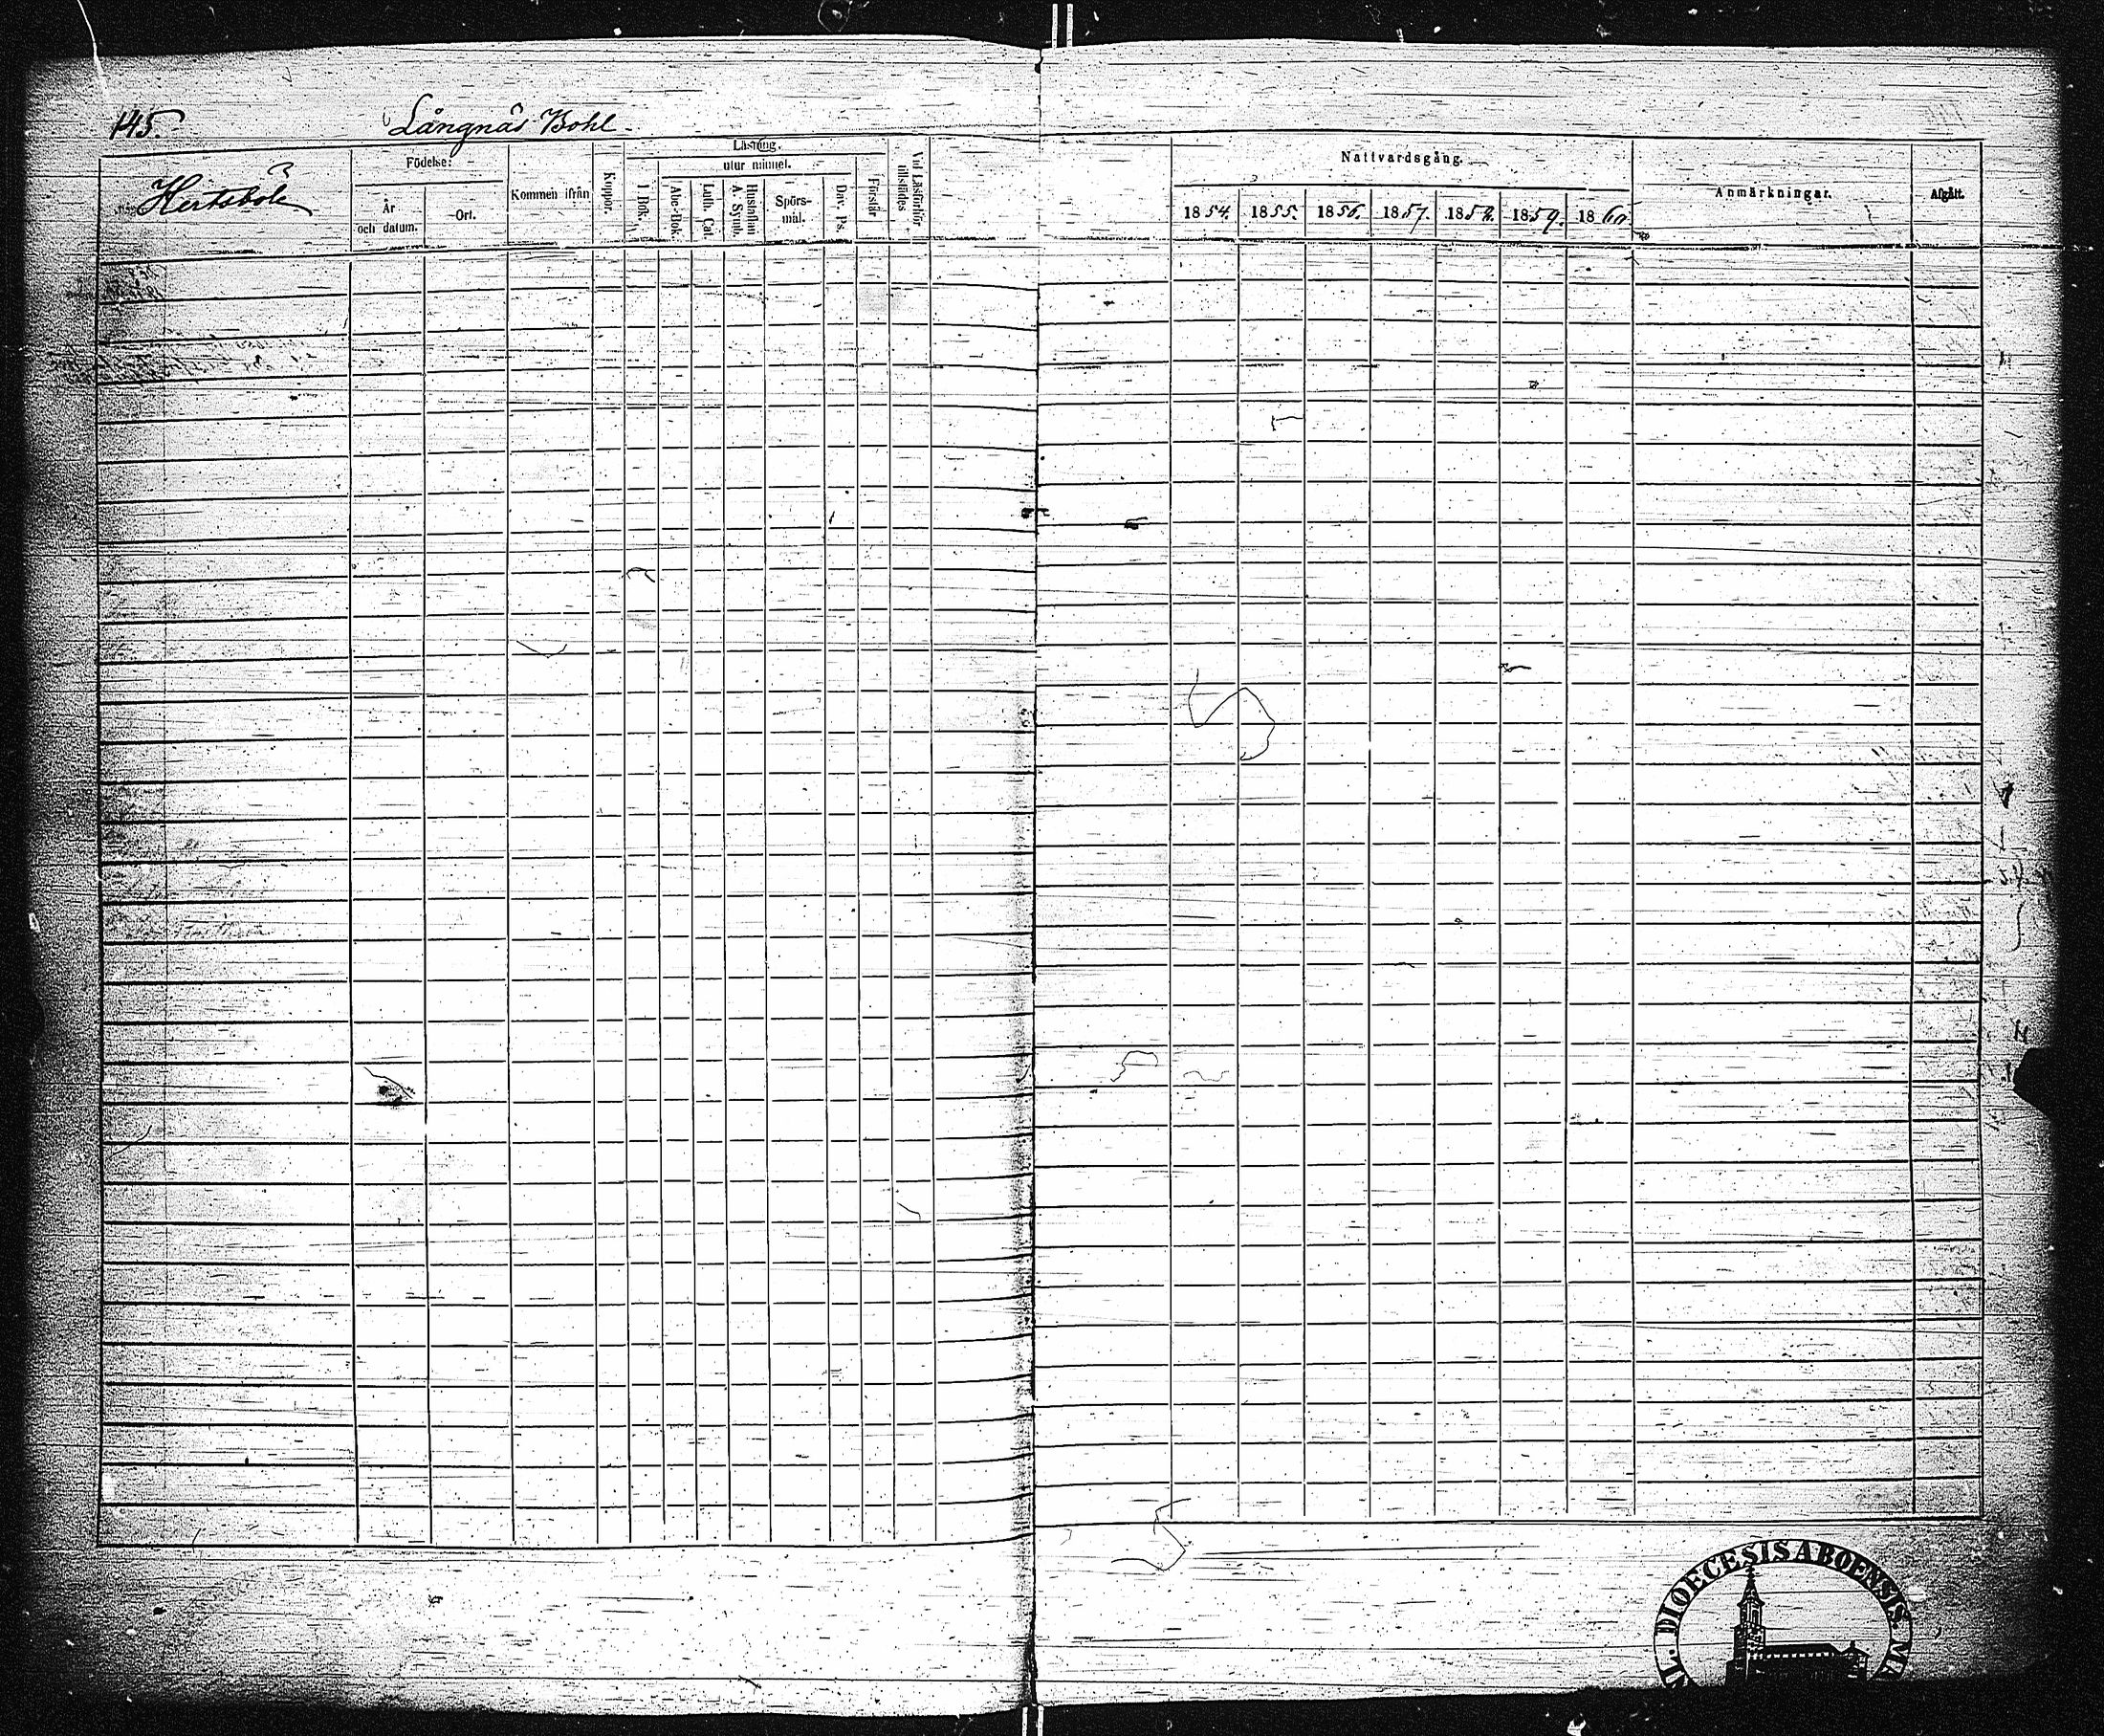 145.
Långnäs Bohl.
Hertsböle
Födelse:
År
och datum.
Ort.
Kommen ifrån
Koppor.
Läsning.
utur minnet.
I Bok.
Abc-Bok.
Luth. Cat.
Hustaflan
A. Symb.
Spörs-
mål.
Dav. Ps.
Förstår
Vid Läsförhör
tillstädes
Nattvardsgång.
1854.
1855.
1856.
1857.
1858.
1859.
1860
Anmärkningar.
Afgått.
DIOECESIS ABOENSIS.